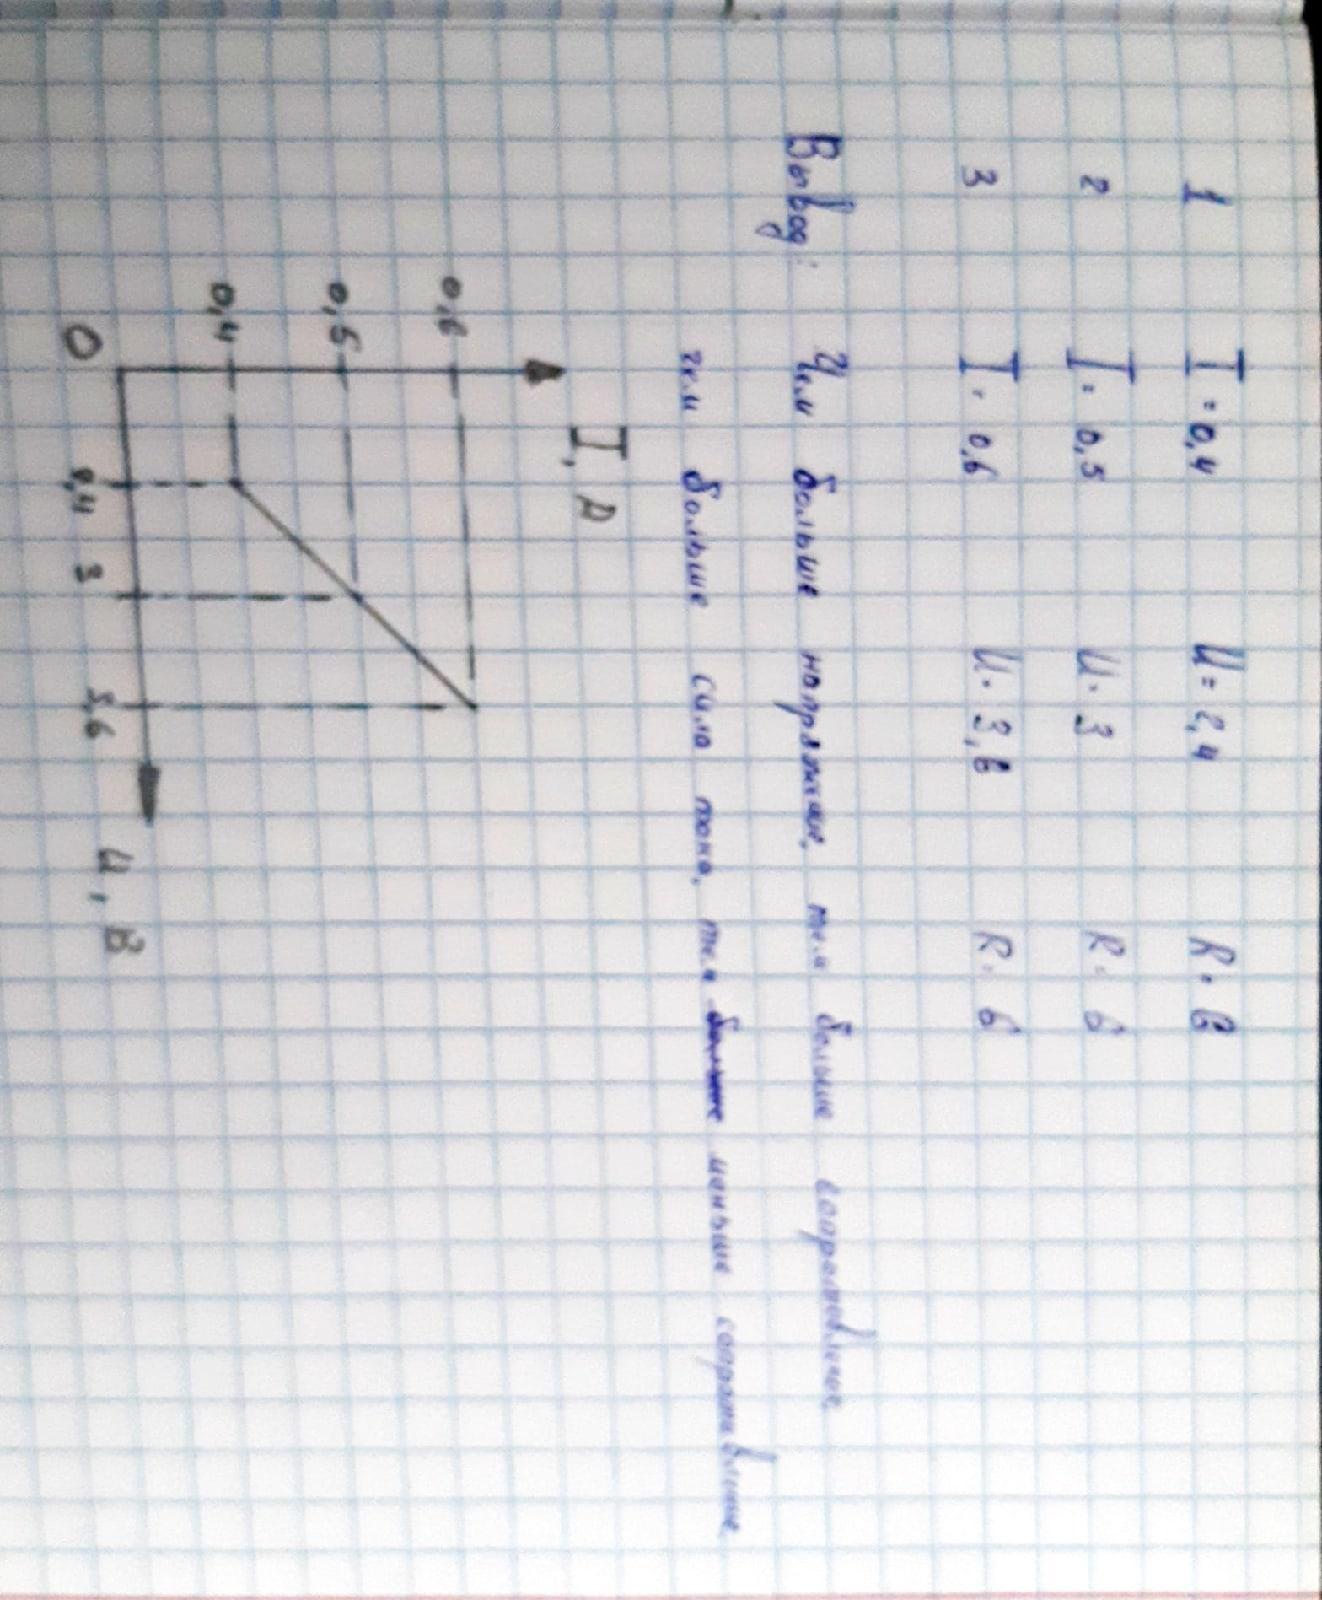 1 I = 0,4 U = 2,4 R = 6
2 I = 0,5 U = 3 R = 6
3 I = 0,6 U = 3,6 R = 6
Вывод: Чем больше напряжение, тем больше сопротивление,
чем больше сила тока, тем больше меньше сопротивление.
I, A
0,6
0,5
0,4
0
2,4 3 3,6 U, В